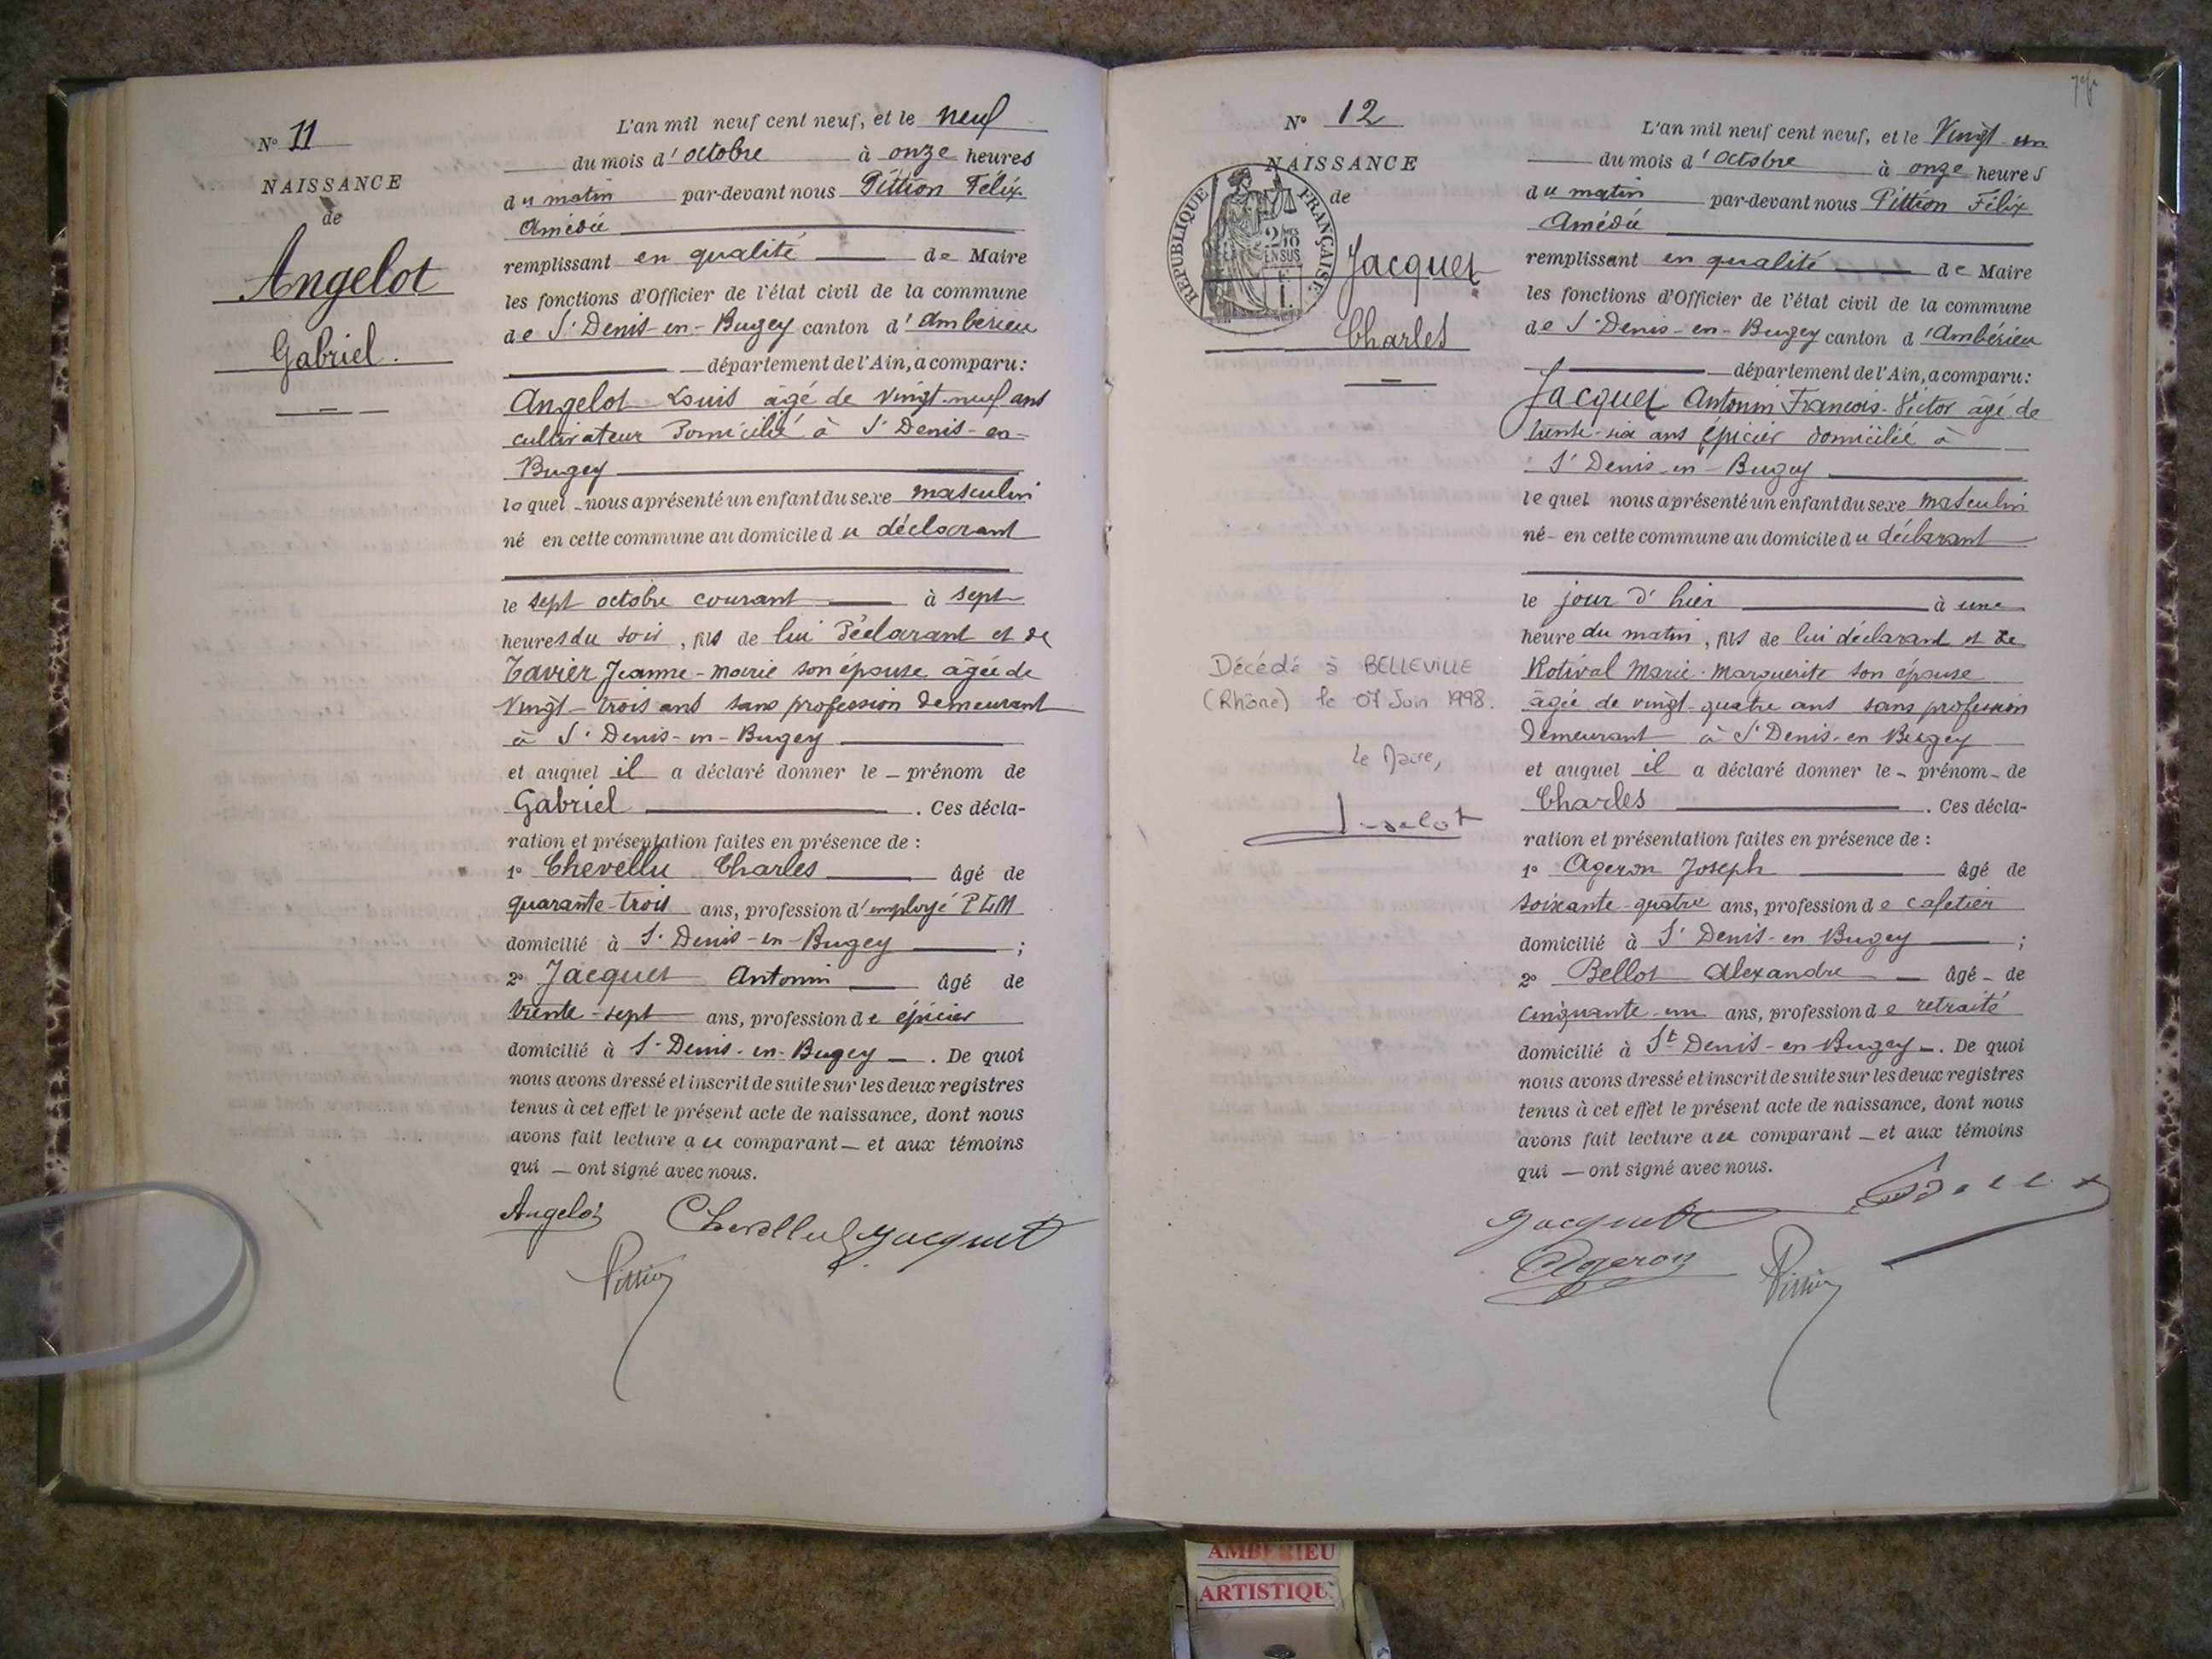 N° 11
NAISSANCE
de
Angelot
Gabriel.
L'an mil neuf cent neuf, et le neuf
du mois d'octobre à onze heures
du matin par-devant nous Pittion Félix
Amédée
remplissant en qualité de Maire
les fonctions d'Officier de l'état civil de la commune
de St Denis-en-Bugey canton d'Ambérieu
département de l'Ain, a comparu:
Angelot Louis âgé de vingt-neuf ans
cultivateur domicilié à St Denis-en-
Bugey
lequel nous a présenté un enfant du sexe masculin
né en cette commune au domicile du déclarant
le sept octobre courant à sept
heures du soir, fils de lui déclarant et de
Tavier Jeanne-Marie son épouse âgée de
vingt-trois ans sans profession demeurant
à St Denis-en-Bugey
et auquel il a déclaré donner le prénom de
Gabriel. Ces décla-
ration et présentation faites en présence de :
1° Chevellu Charles âgé de
quarante-trois ans, profession d'employé PLM
domicilié à St Denis-en-Bugey ;
2° Jacquet Antonin âgé de
trente-sept ans, profession de épicier
domicilié à St Denis-en-Bugey. De quoi
nous avons dressé et inscrit de suite sur les deux registres
tenus à cet effet le présent acte de naissance, dont nous
avons fait lecture au comparant et aux témoins
qui ont signé avec nous.
Angelot Chevellu Jacquet
Pittion
N° 12
NAISSANCE
de
REPUBLIQUE FRANÇAISE
2/10 EN SUS
Jacquet
Charles
Décédé à BELLEVILLE
(Rhône) le 07 Juin 1998.
Le Maire,
L'an mil neuf cent neuf, et le Vingt-un
du mois d'octobre à onze heures
du matin par-devant nous Pittion Félix
Amédée
remplissant en qualité de Maire
les fonctions d'Officier de l'état civil de la commune
de St Denis-en-Bugey canton d'Ambérieu
département de l'Ain, a comparu:
Jacquet Antonin François-Victor âgé de
trente-six ans épicier domicilié à
St Denis-en-Bugey
lequel nous a présenté un enfant du sexe masculin
né en cette commune au domicile du déclarant
le jour d'hier à une
heure du matin, fils de lui déclarant et de
Rotival Marie-Marguerite son épouse
âgée de vingt-quatre ans sans profession
demeurant à St Denis-en Bugey
et auquel il a déclaré donner le prénom de
Charles. Ces décla-
ration et présentation faites en présence de :
1° Ageron Joseph âgé de
soixante-quatre ans, profession de cafetier
domicilié à St Denis-en Bugey ;
2° Bellot Alexandre âgé de
cinquante-un ans, profession de retraité
domicilié à St Denis-en Bugey. De quoi
nous avons dressé et inscrit de suite sur les deux registres
tenus à cet effet le présent acte de naissance, dont nous
avons fait lecture au comparant et aux témoins
qui ont signé avec nous.
Jacquet Bellot
Ageron Pittion
AMBERIEU
ARTISTIQU